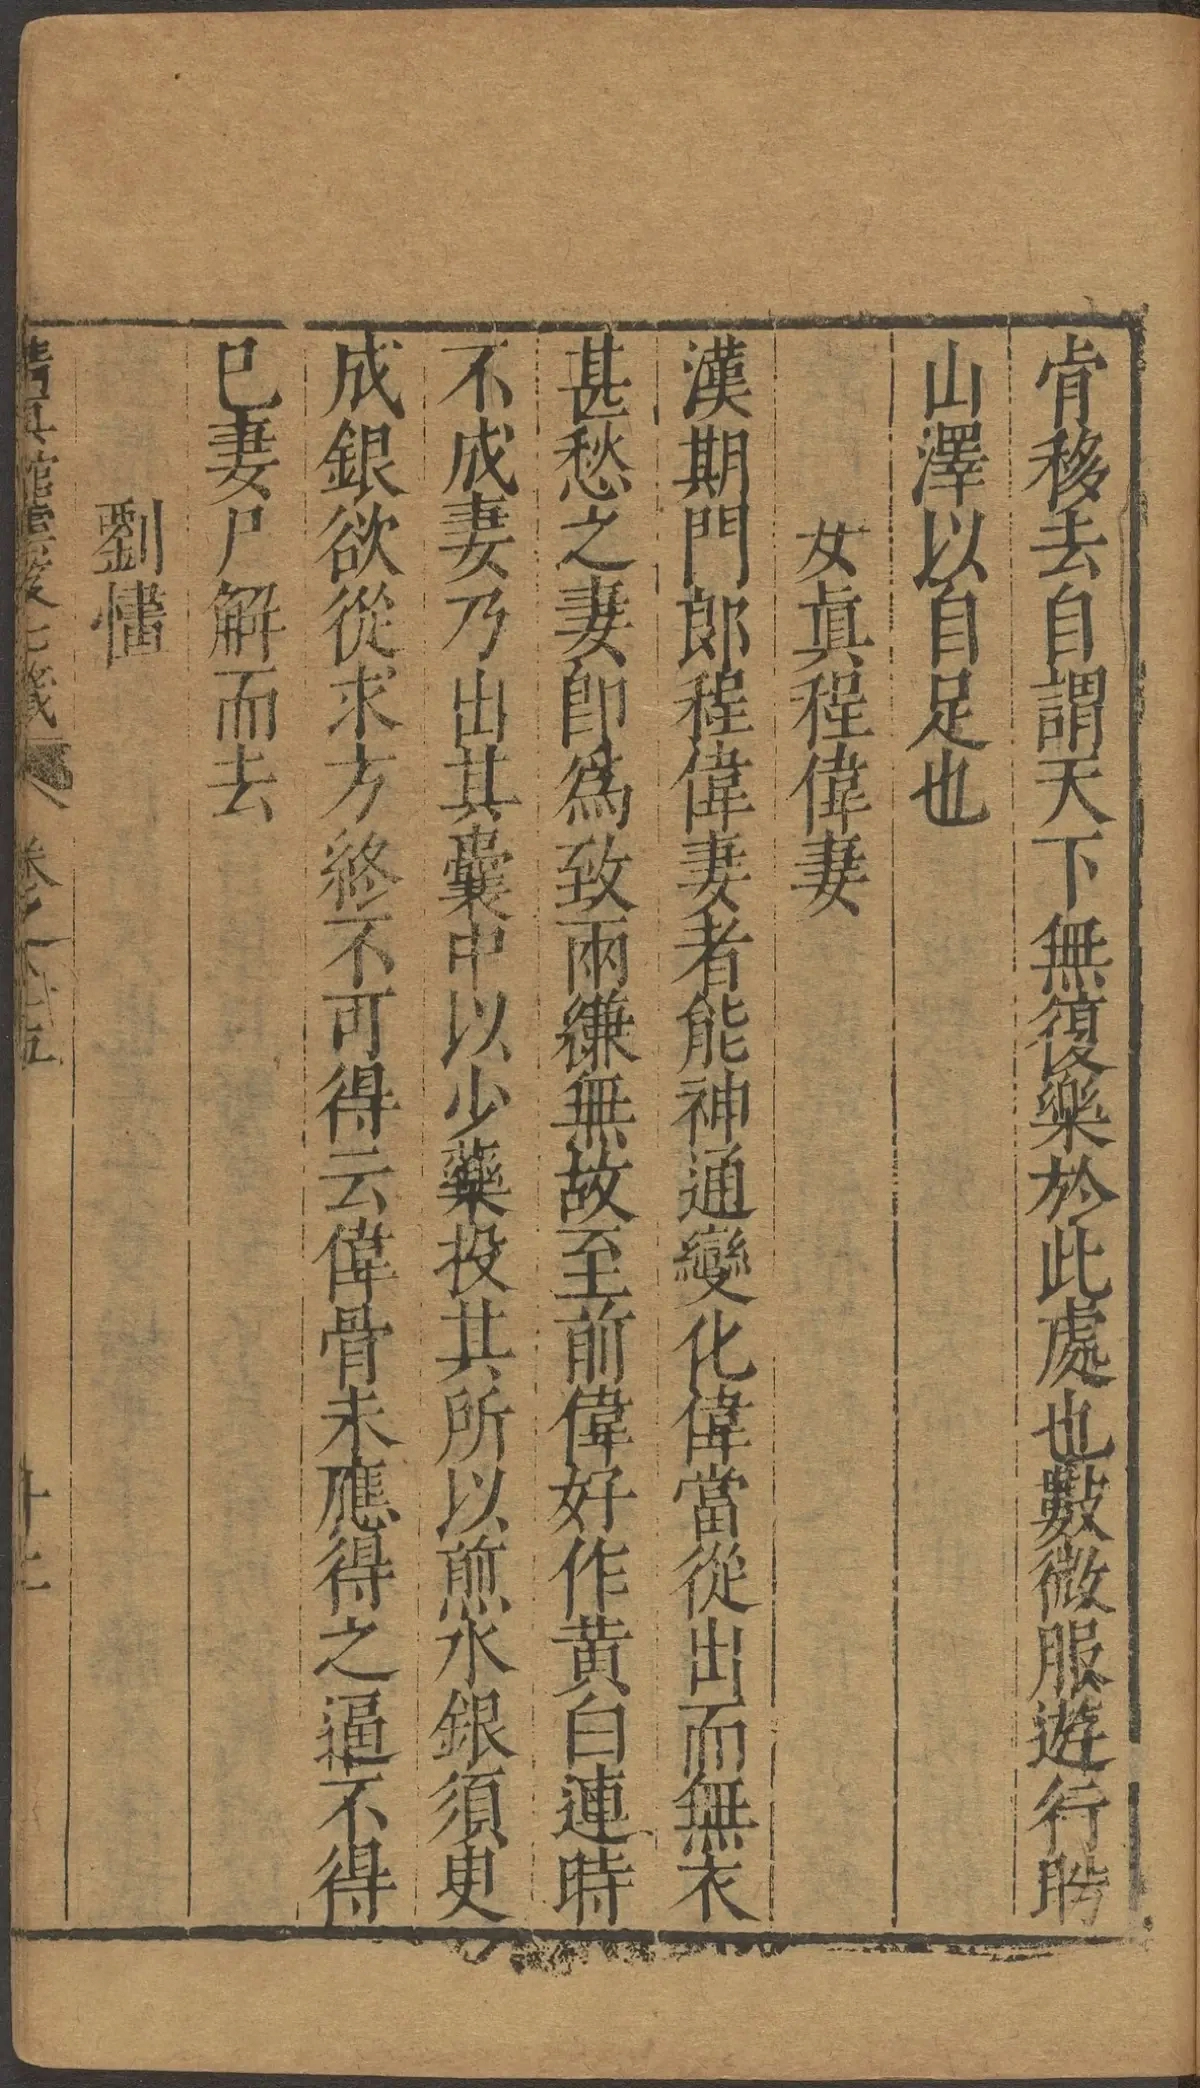 肯移去自謂天下無復樂於此處也數微服遊行盼
山澤以自足也
女眞程偉妻
漢期門郎程偉妻者能神通變化偉當從出而無衣
甚愁之妻卽爲致兩縑無故至前偉好作黄白連時
不成妻乃出其囊中以少藥投其所以煎水銀須臾
成銀欲從求方終不可得云偉骨未應得之逼不得
已妻尸解而去
劉𢢼
清眞館雲笈七籤 卷之一百十五 十二